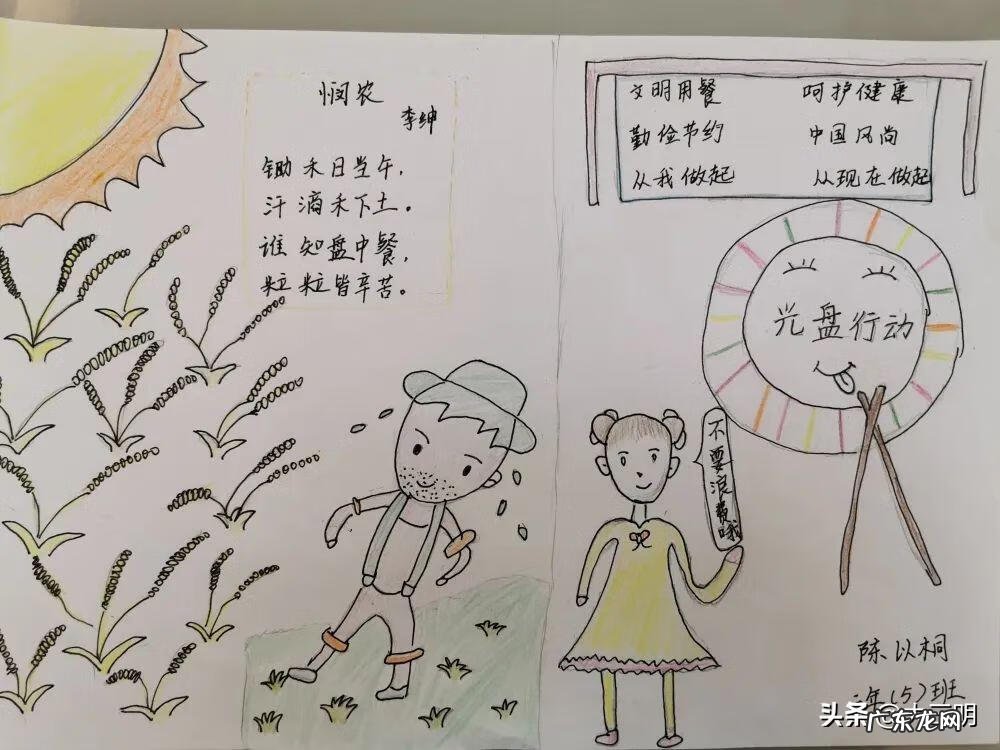 悯农
李绅
锄禾日当午，
汗滴禾下土。
谁知盘中餐，
粒粒皆辛苦。
文明用餐 呵护健康
勤俭节约 中国风尚
从我做起 从现在做起
光盘行动
不要浪费哦
陈以桐
年(5)班
头条
广东龙网